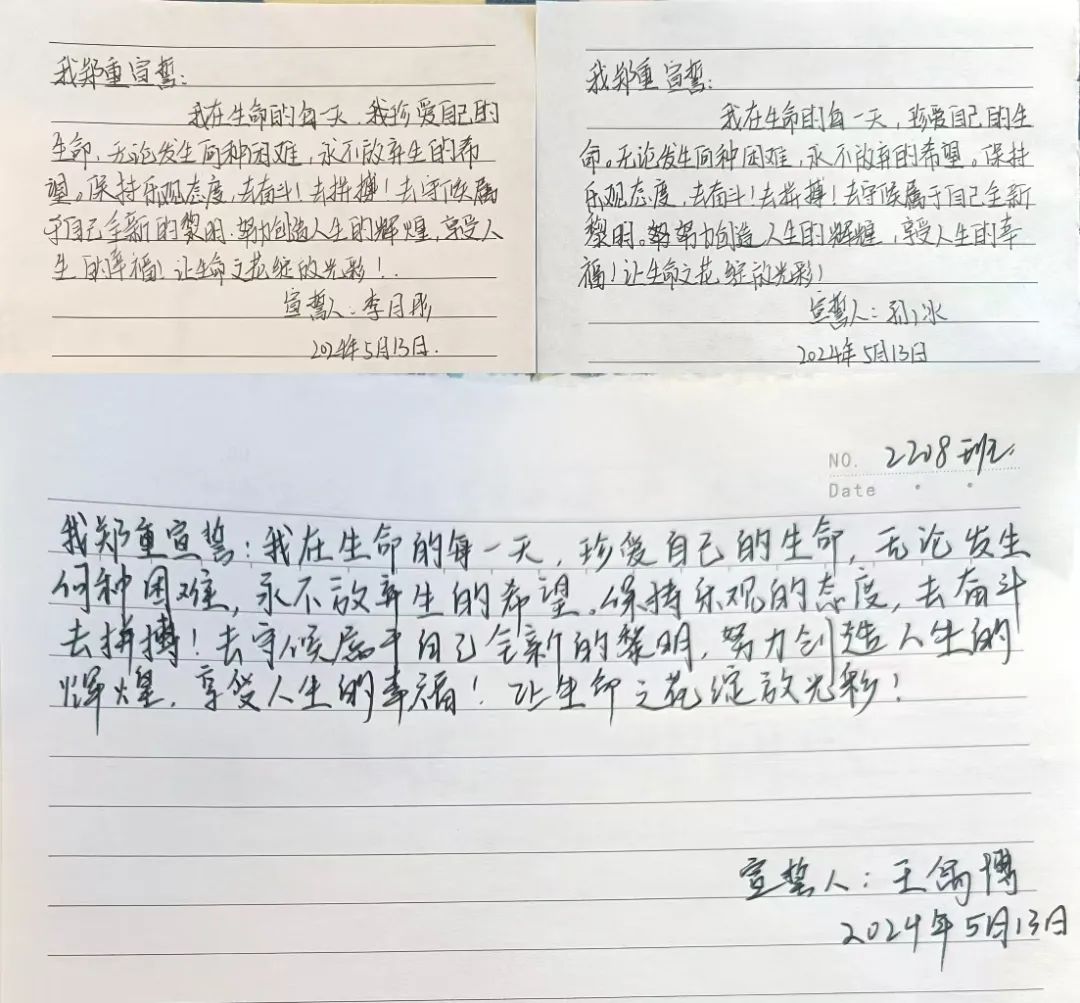 我郑重宣誓:
我在生命的每一天,我珍爱自己的
生命,无论发生何种困难,永不放弃生的希
望。保持乐观态度,去奋斗!去拼搏!去守候属
于自己全新的黎明.努力创造人生的辉煌,享受人
生的幸福!让生命之花绽放光彩!.
宣誓人:李月彤
2024年5月13日.
我郑重宣誓:
我在生命的每一天,珍爱自己的生
命。无论发生何种困难,永不放弃的希望。保持
乐观态度,去奋斗!去拼搏!去守候属于自己全新
黎明。努努力创造人生的辉煌,享受人生的幸
福!让生命之花绽放光彩!
宣誓人:孙冰
2024年5月13日
NO. 2208班.
Date
我郑重宣誓:我在生命的每一天,珍爱自己的生命,无论发生
何种困难,永不放弃生的希望。保持乐观的态度,去奋斗
去拼搏!去守候属于自己全新的黎明,努力创造人生的
辉煌,享受人生的幸福!让生命之花绽放光彩!
宣誓人:王博
2024年5月13日